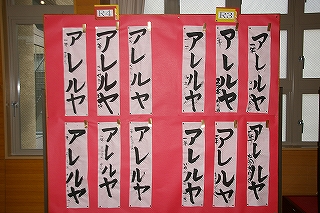 K4
K3
アレルヤ
アレルヤ
アレルヤ
アレルヤ
アレルヤ
アレルヤ
アレルヤ
アレルヤ
アレルヤ
アレルヤ
アレルヤ
アレルヤ